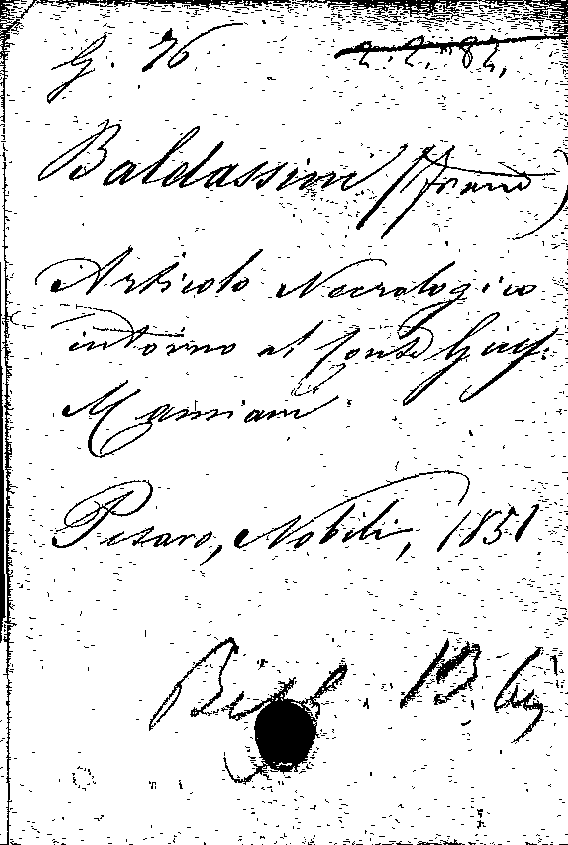 G. 76 2.2.82.
Baldassini (Franc)
Articolo Necrologico
intorno al Conte Gius.
Mamiani
Pesaro, Nobili, 1851
B.